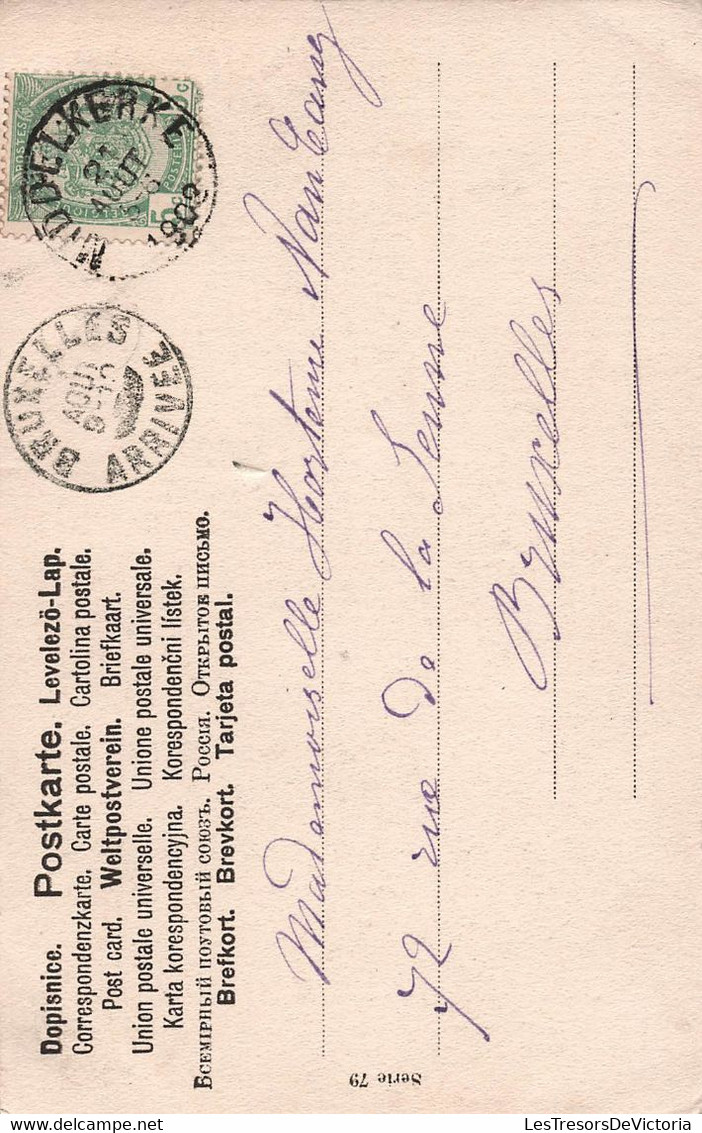 Dopisnice. Postkarte. Levelezö-Lap.
Correspondenzkarte. Carte postale. Cartolina postale.
Post card. Weltpostverein. Briefkaart.
Union postale universelle. Unione postale universale.
Karta korespondencyjna. Korespondenčni lístek.
Всемірный поутовый союзъ. Россія. Открытое письмо.
Brefkort. Brevkort. Tarjeta postal.
MIDDELKERKE
21
AOUT
1902
POSTES
BRUXELLES
AOU
ARRIVEE
Mademoiselle Hortense Van
72 rue de la Senne
Bruxelles
Serie 79
LesTresorsDeVictoria